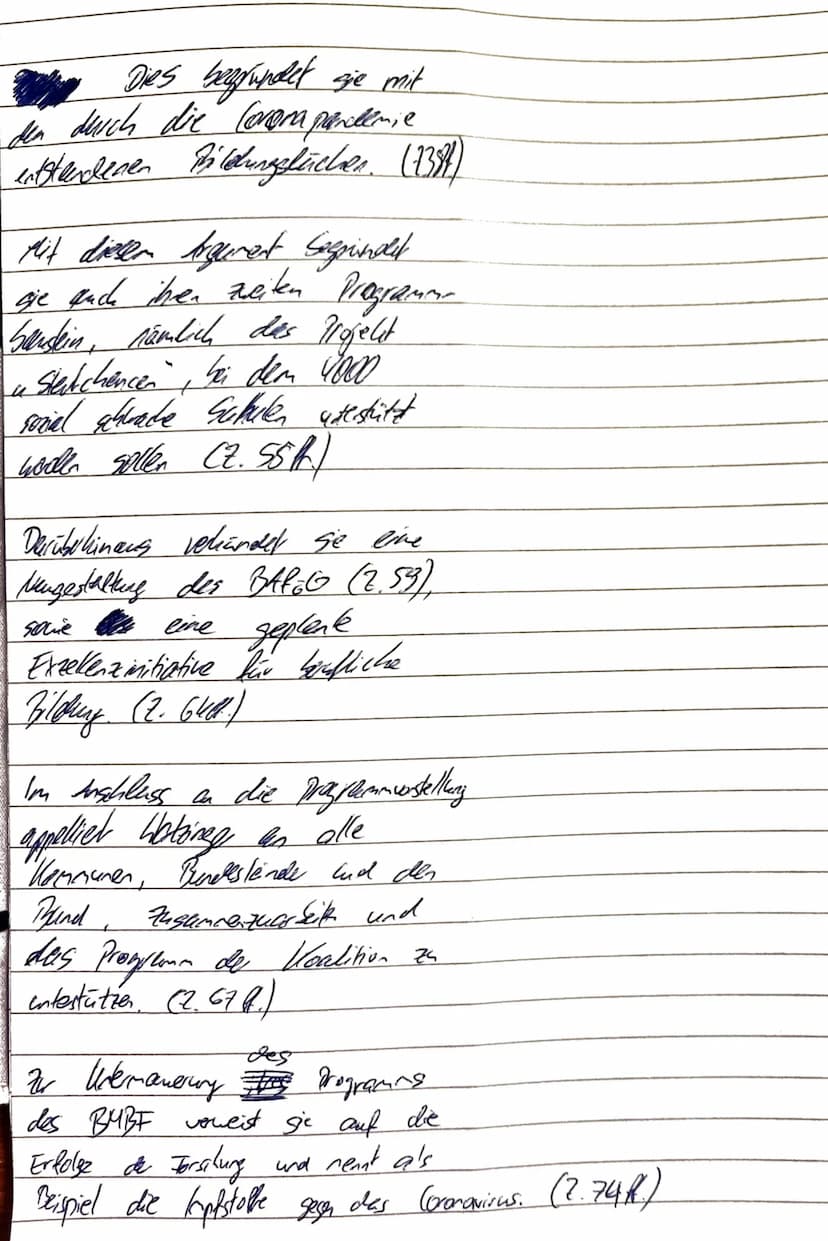 Dies begründet sie mit
den durch die Coronapandemie
entstandenen Bildungslücken. (Z38ff)
Mit diesem Argument begründet
sie auch ihren zweiten Programm-
baustein, nämlich das Projekt
„Startchancen“, bei dem 4000
sozial schwache Schulen unterstützt
werden sollen (Z. 55ff.)
Darüberhinaus verkündet sie eine
Neugestaltung des BAföG (Z. 59),
sowie eine geplante
Exzellenzinitiative für berufliche
Bildung. (Z. 64ff.)
Im Anschluss an die Programmvorstellung
appelliert an alle
Kommunen, Bundesländer und den
Bund, zusammenzuarbeiten und
das Programm der Koalition zu
unterstützen. (Z. 67ff.)
Zur Untermauerung des Programms
des BMBF verweist sie auf die
Erfolge der Forschung und nennt als
Beispiel die Impfstoffe gegen das Coronavirus. (Z. 74ff.)